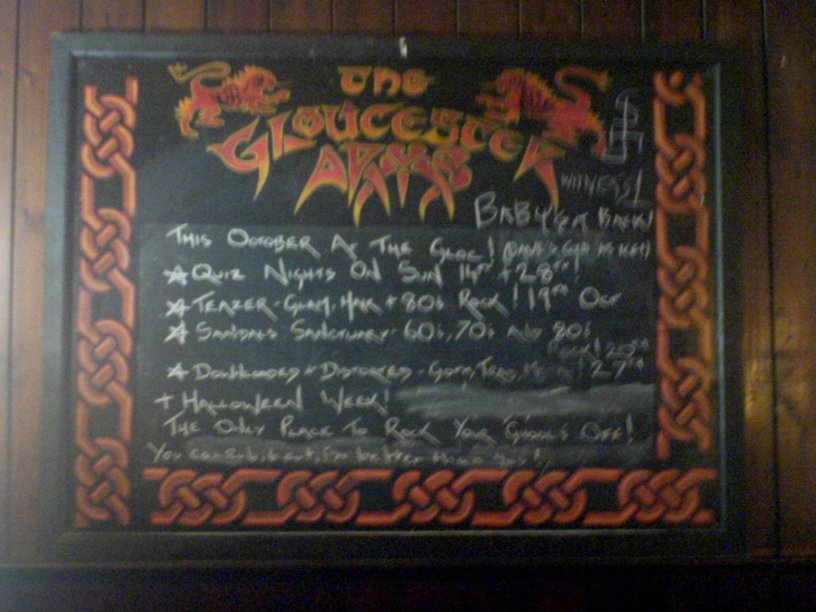 The
Gloucester
Arms
WITNESS!
BABY I'M BACK!
THIS OCTOBER AT THE GLOC!
★ QUIZ NIGHTS ON SUN 14TH + 28TH!
★ TEAZER - GLAM, HAIR + 80s ROCK! 19TH OCT
★ SANDALS SANCTUARY - 60s, 70s AND 80s
ROCK! 20TH
★ DOWNLOADED + DISTORTED - GOTH, TRAD, METAL! 27TH
+ HALLOWEEN WEEK!
THE ONLY PLACE TO ROCK YOUR GHOULS OFF!
You can rub it out, I'm better than you!